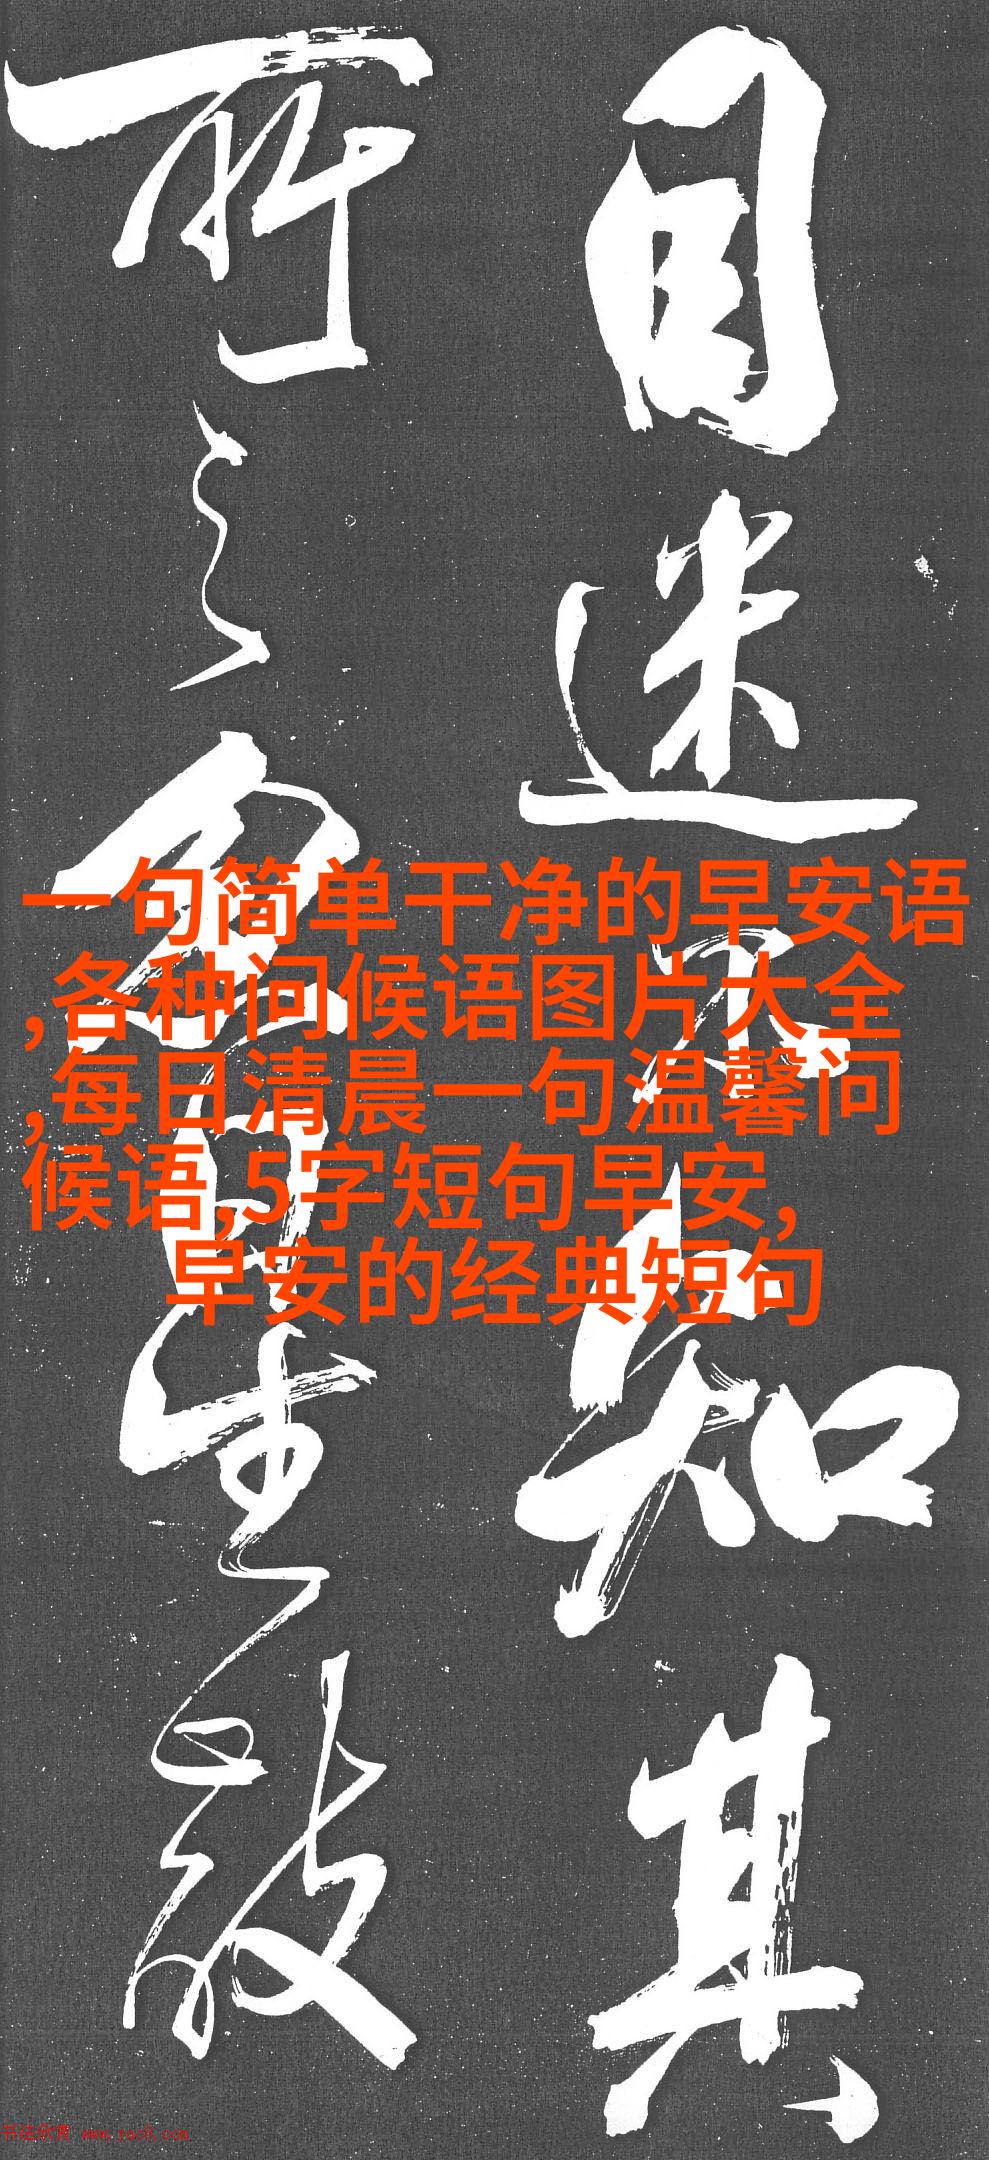 目迷不知其
所之 白生敲
一句简单干净的早安语
,各种问候语图片大全
,每日清晨一句温馨问
候语,5字短句早安,
早安的经典短句
书法欣赏 www.yac8.com